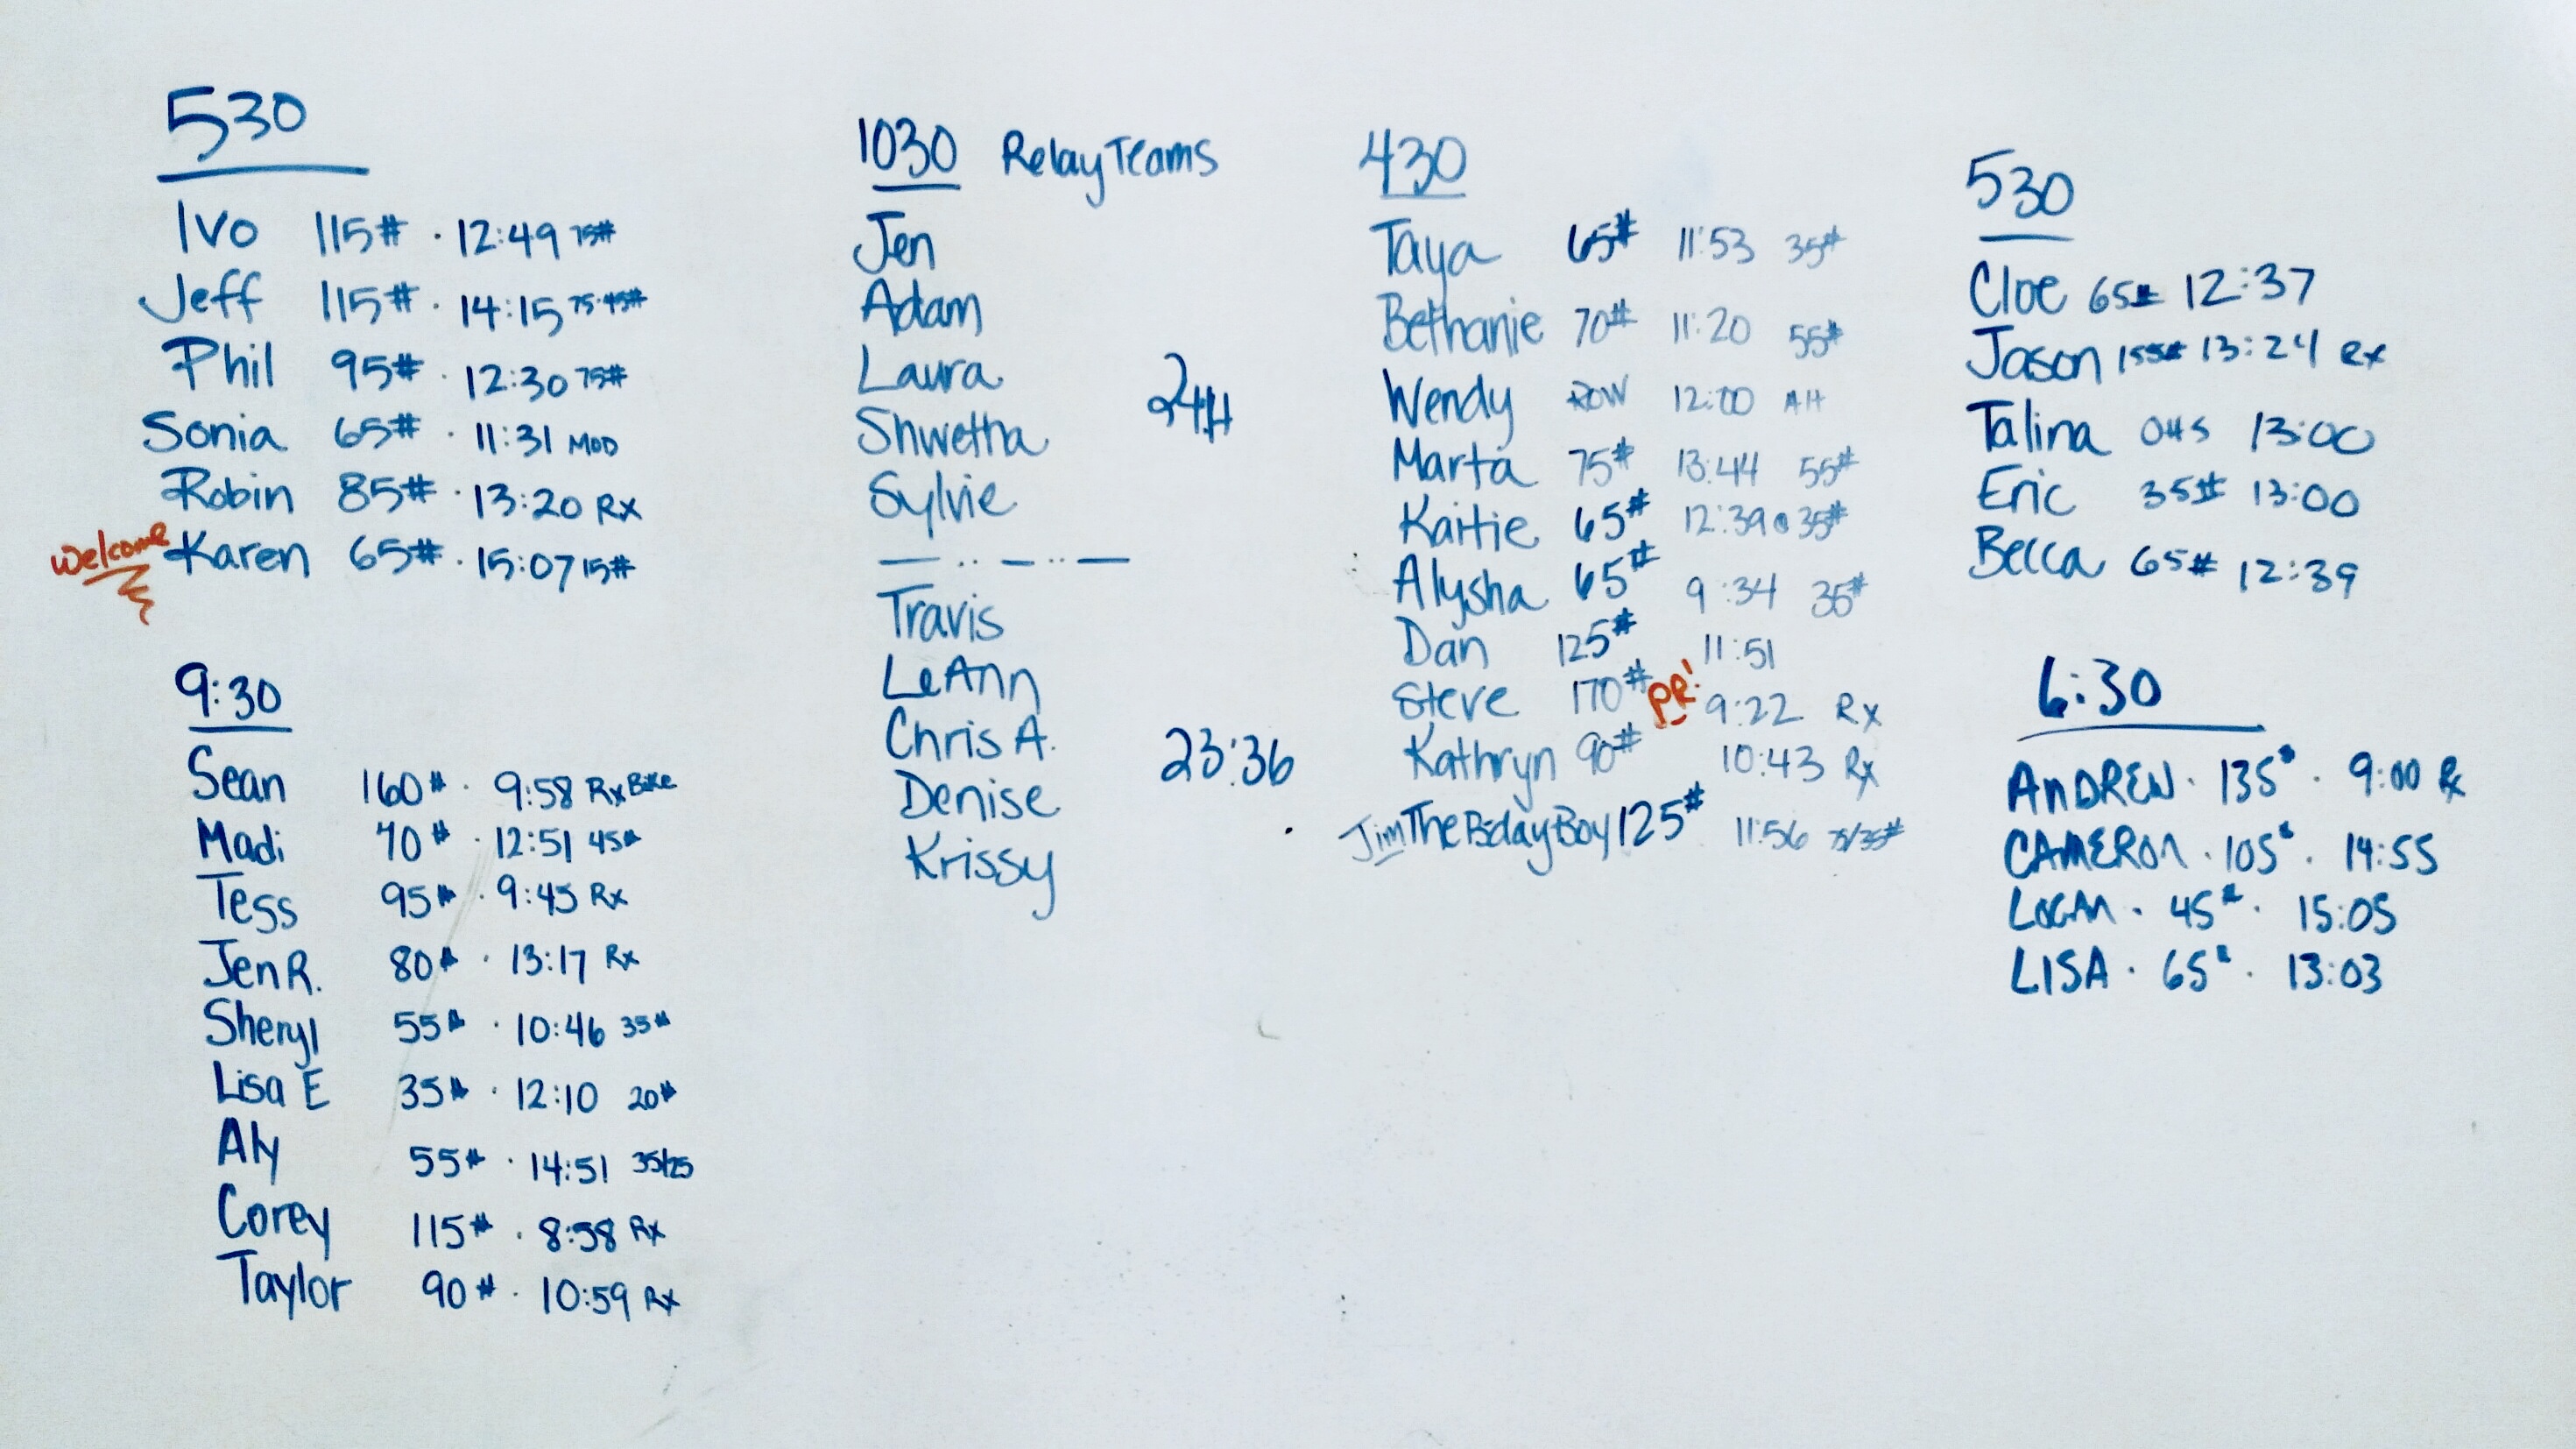 530
Ivo 115# · 12:49 75#
Jeff 115# · 14:15 75·45#
Phil 95# · 12:30 75#
Sonia 65# · 11:31 MOD
Robin 85# · 13:20 Rx
welcome Karen 65# · 15:07 15#
9:30
Sean 160# · 9:58 Rx Bike
Madi 70# · 12:51 45#
Tess 95# · 9:45 Rx
Jen R. 80# · 13:17 Rx
Sheryl 55# · 10:46 35#
Lisa E 35# · 12:10 20#
Aly 55# · 14:51 35/25
Corey 115# · 8:58 Rx
Taylor 90# · 10:59 Rx
1030 Relay Teams
Jen
Adam
Laura
Shwetha
Sylvie
Travis
LeAnn
Chris A.
23:36
Denise
Krissy
430
Taya 65# 11:53 35#
Bethanie 70# 11:20 55#
Wendy ROW 12:00
Marta 75# 13:44 55#
Kaitie 65# 12:39 @ 35#
Alysha 65# 9:34 35#
Dan 125# 11:51
Steve 170# PR! 9:22 Rx
Kathryn 90# 10:43 Rx
Jim The Bday Boy 125# 11:56 75/35#
530
Cloe 65# 12:37
Jason 155# 13:24 Rx
Talina OHS 13:00
Eric 35# 13:00
Becca 65# 12:39
6:30
ANDREW · 135# · 9:00 Rx
CAMERON · 105# · 14:55
LOGAN · 45# · 15:05
LISA · 65# · 13:03